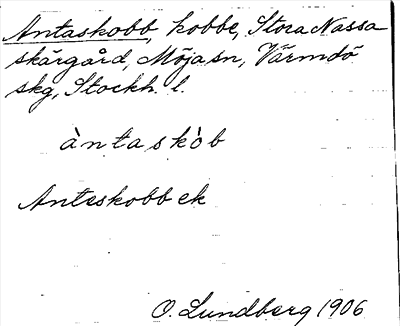 Antaskobb, kobbe, Stora Nassa
skärgård, Möja sn, Värmdö
skg, Stockh. l.
àntaskòb
Anteskobb ek
O. Lundberg 1906